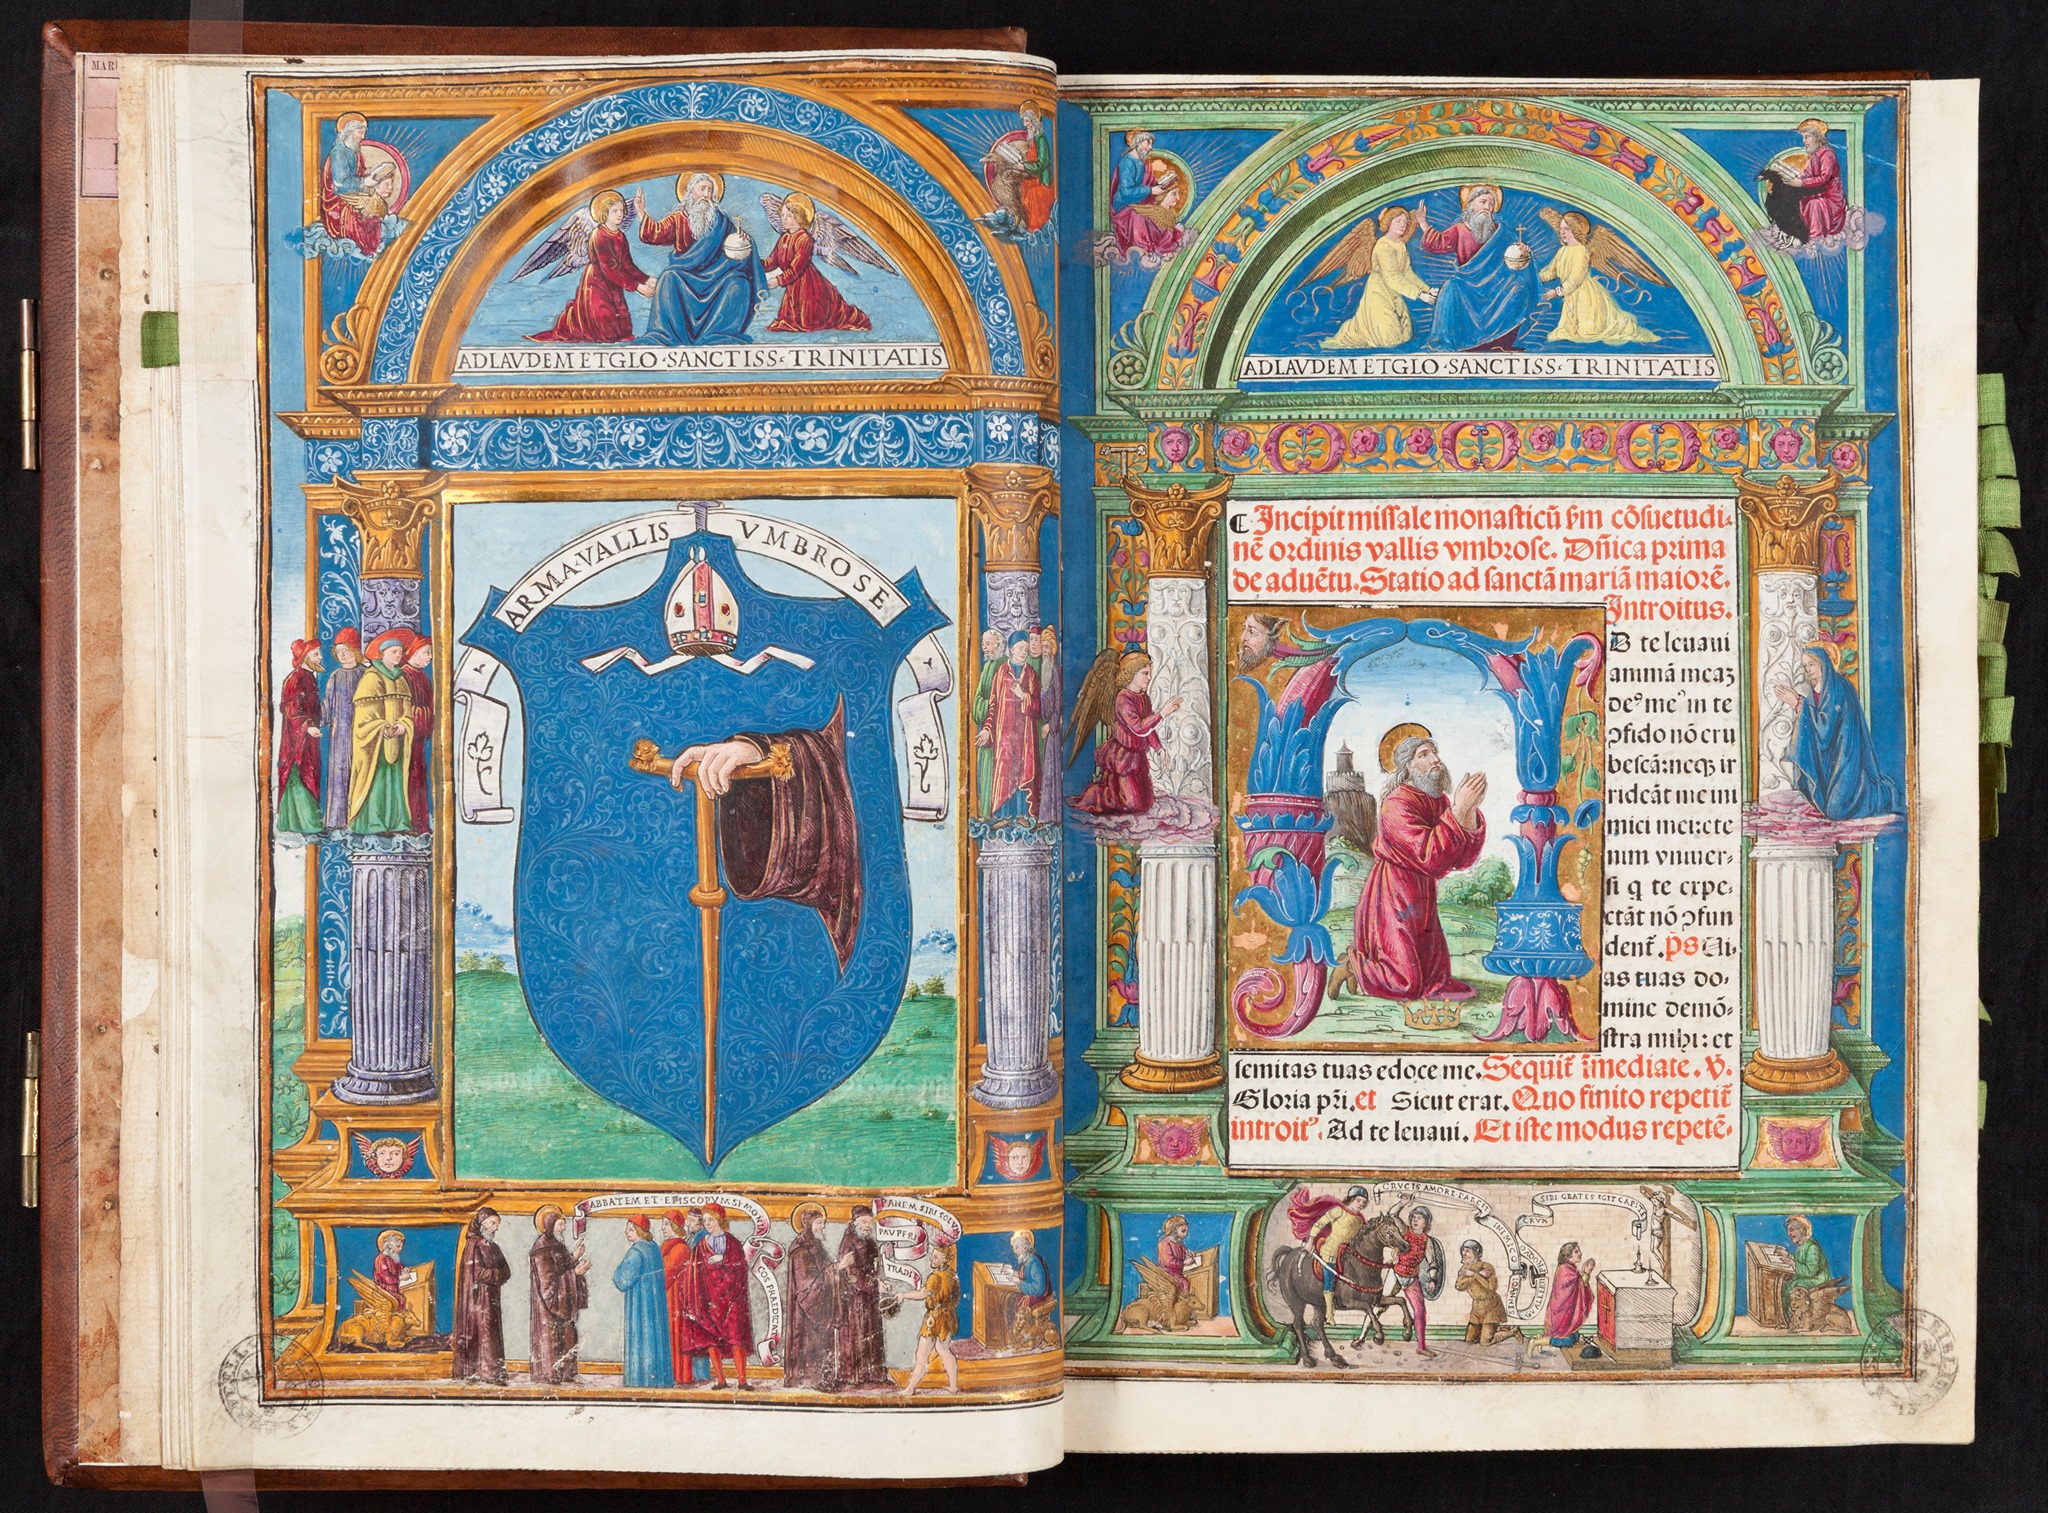 MAR
ADLAVDEM ETGLO·SANCTISS·TRINITATIS
ARMA·VALLIS VMBROSE
ABBATEM ET·EPISCOPVM SIMONIA
COS PRAEDICAT
PANEM SIBI SOLVM
PAVPERI
TRADIT
ADLAVDEM ETGLO·SANCTISS·TRINITATIS
¶ Incipit missale monasticū ẜm cōsuetudi-
nē ordinis vallis vmbrose. Dñica prima
de aduētu. Statio ad sanctā mariā maiorē.
Introitus.
AD te leuaui
animā meaꝫ
deꝰ meꝰ in te
ↄfido nō eru
bescā: neqꝫ ir
rideāt me ini
mici mei: ete
nim vniuer-
si q te expe-
ctāt nō ↄfun
dent̄. ps Ui-
as tuas do-
mine demō-
stra mihi: et
semitas tuas edoce me. Sequit̄ īmediate. V.
Gloria pr̄i. et Sicut erat. Quo finito repetit̄
introitꝰ. Ad te leuaui. Et iste modus repetē-
CRVCIS AMORE PARCIT
INIMICO
SIBI GRATIS EGIT CAPITE
CRVX
13